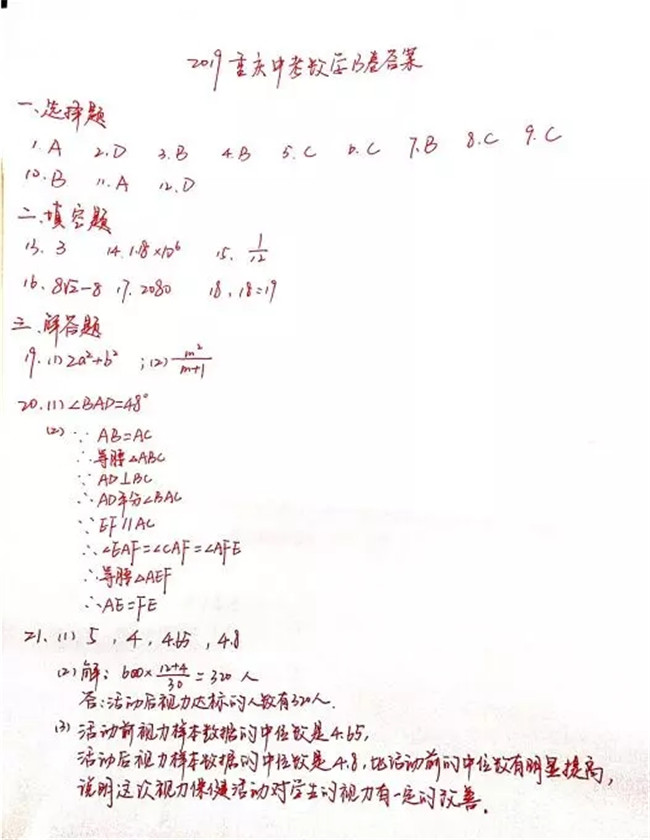 2019重庆中考数学B卷答案
一、选择题
1. A 2. D 3. B 4. B 5. C 6. C 7. B 8. C 9. C
10. B 11. A 12. D
二、填空题
13. 3 14. 1.18×10⁶ 15. 1/12
16. 8√2-8 17. 2080 18. 18:19
三、解答题
19. (1) 2a²+b² ; (2) m²/(m+1)
20. (1) ∠BAD=48°
(2) ∵ AB=AC
∴等腰△ABC
∵AD⊥BC
∴AD平分∠BAC
∵EF∥AC
∴∠EAF=∠CAF=∠AFE
∴等腰△AEF
∴AE=FE
21. (1) 5, 4, 4.65, 4.8
(2) 解: 600×(12+4)/30=320人
答:活动后视力达标的人数有320人.
(3) 活动前视力样本数据的中位数是4.65,
活动后视力样本数据的中位数是4.8,比活动前的中位数有明显提高,
说明这次视力保健活动对学生的视力有一定的改善.